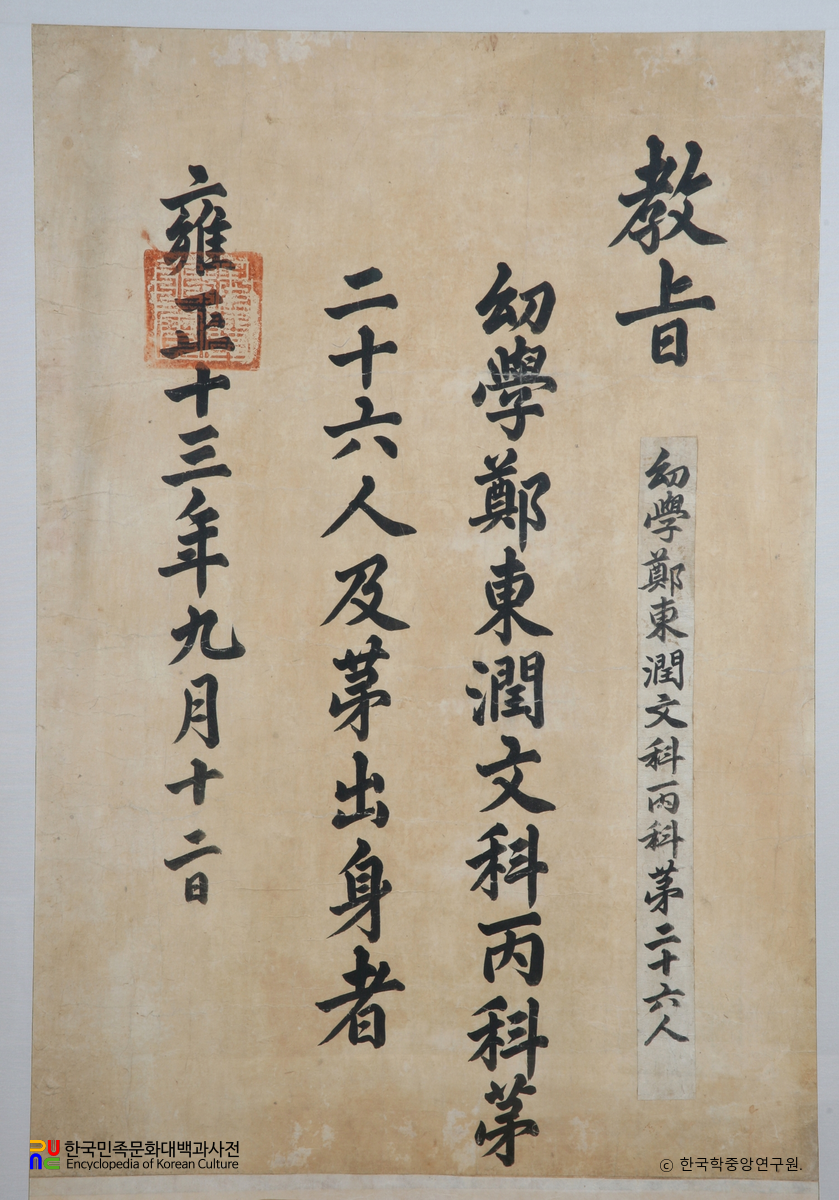 教旨
幼學鄭東潤文科丙科第二十六人
幼學鄭東潤文科丙科第
二十六人及第出身者
雍正十三年九月十二日
한국민족문화대백과사전
Encyclopedia of Korean Culture
ⓒ 한국학중앙연구원.